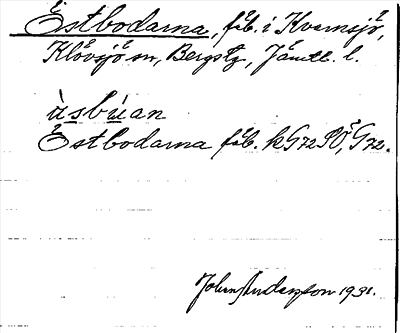 Östbodarna, fäb. i Kvarnsjö,
Klövsjö sn, Bergstg, Jämtl. l.
ùsbúan
Östbodarna fäb. kG72SÖ, G72.
John Andersson 1931.